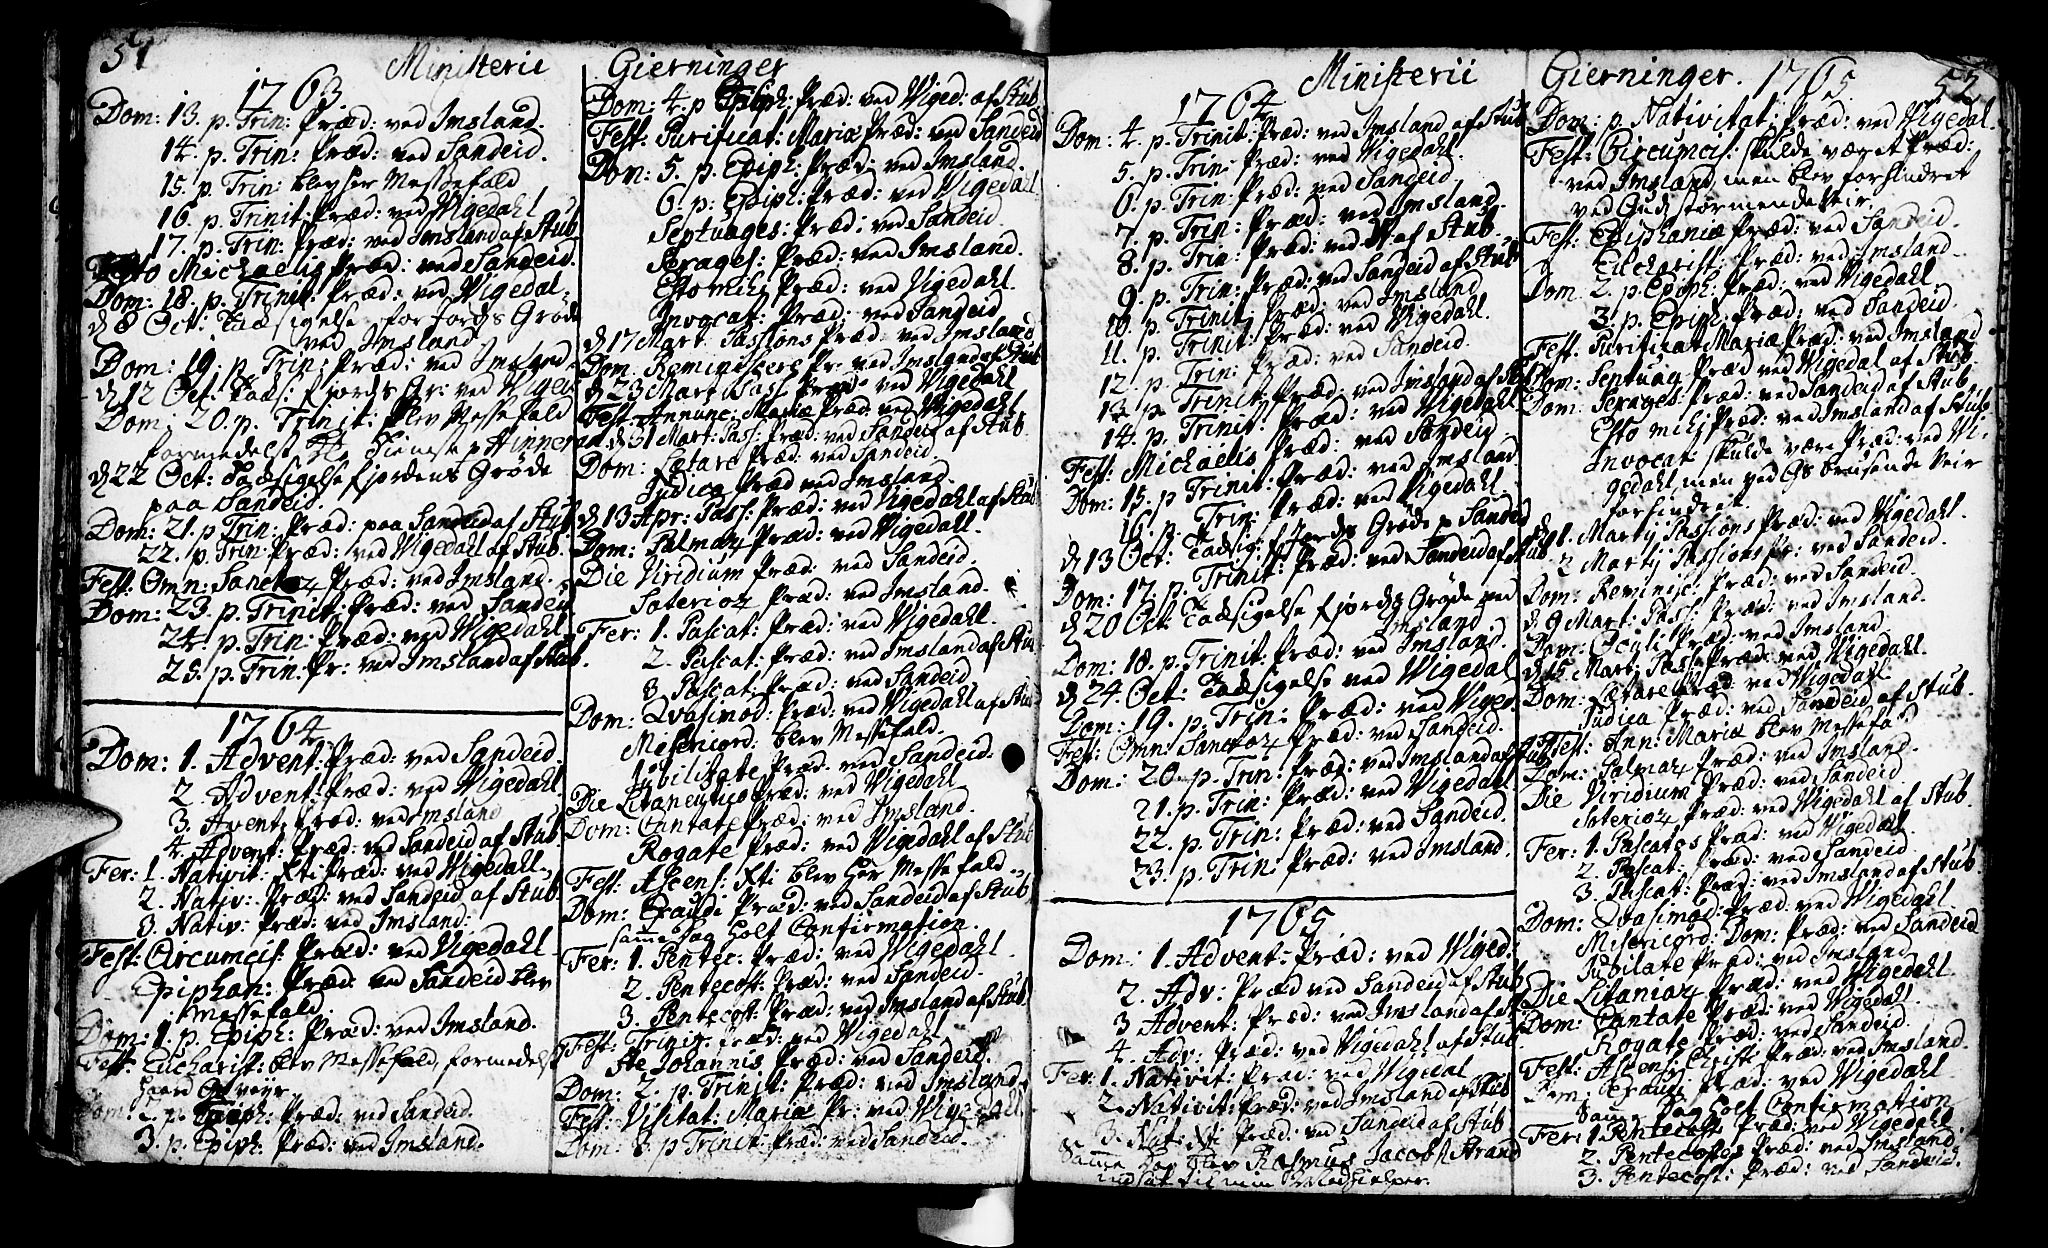 51
Ministerii Gierninger
1763.
Dom: 13. p. Trin: Præd: ved Imsland.
14. p. Trin: Præd: ved Sandeid.
15. p Trin: blev her Messefald
16. p. Trinit: Præd: ved Vigedahl
17. p. Trin: Præd: ved Imsland af Stub
Festo Michaelis Præd: ved Sandeid.
Dom: 18. p. Trinit: Præd: ved Vigedal.
d 8 Oct: Taksigelse for Jords Grøde
ved Imsland
Dom: 19. p. Trin: Præd: ved Imsland
d 12 Oct: Taks: f Jords Gr: ved Viged
Dom: 20. p. Trinit: blev Messefald
formedelst Tieneste
d 22 Oct: Taksigelse f Jordens Grøde
paa Sandeid.
Dom: 21. p Trin: Præd: paa Sandeid af Stub.
22. p. Trin: Præd: ved Vigedahl af Stub.
Fest: Omn: Sanct: Præd: ved Imsland.
Dom: 23. p. Trinit: Præd: ved Sandeid
24. p. Trin: Præd: ved Vigedahl
25. p. Trin: Pr: ved Imsland af Stub.
1764
Dom: 1. Advent: Præd: ved Sandeid.
2. Advent: Præd: ved Vigedahl.
3. Advent: Præd: ved Imsland
4. Advent: Præd: ved Sandeid af Stub
Fer: 1. Nativit: Xti Præd: ved Vigedahl
2. Nativ: Præd: ved Sandeid af Stub
3. Nativ: Præd: ved Imsland:
Fest: Circumcis: Præd: ved Vigedahl
Epiphan: Præd: ved Sandeid blev
Messefald.
Dom: 1. p. Epiph: Præd: ved Imsland.
Fest: Eucharist: blev Messefald, formedelst
haard
Dom: 2. p. Epiph: Præd: ved Sandeid.
3. p. Epiph: Præd: ved Imsland.
Dom: 4. p Epiph: Præd: ved Viged: af Stub
Fest: Purificat: Mariæ Præd: ved Sandeid
Dom: 5. p. Epiph: Præd: ved Imsland.
6. p: Epiph: Præd: ved Vigedahl
Septuages: Præd: ved Sandeid
Sexages: Præd: ved Imsland.
Esto mihi Præd: ved Vigedahl.
Invocat: Præd: ved Sandeid
d 17 Mart: Passions Præd: ved Imsland
Dom. Reminiscere Pr: ved Imsland af Stub
d 23 Mart: Pass: Præd: ved Vigedahl
Fest: Annunc: Mariæ Præd: ved Vigedahl
d 31 Mart: Pass: Præd: ved Sandeid af Stub.
Dom: Lætare Præd: ved Sandeid.
Judica Præd ved Imsland.
d 13 Apr: Pass: Præd: ved Vigedahl af Stub
Dom: Palmar Præd: ved Vigedahl.
Die Viridium Præd: ved Sandeid.
Præd: ved Imsland.
Fer: 1. Pascat: Præd: ved Vigedahl.
2. Pascat: Præd: ved Imsland af Stub
3 Pascat: Præd: ved Sandeid
Dom: Qvasimod: Præd: ved Vigedahl af Stub
Misericord: blev Messefald.
Jubilate Præd. ved Sandeid.
Die Litaneutico Præd: ved Vigedahl
Dom: Cantate Præd: ved Imsland.
Rogate Præd: ved Vigedahl af Stub
Fest: Ascens: Xti blev her Messefald
Dom: Exaudi Præd: ved Sandeid af Stub
samme Dag holt Confirmation.
Fer: 1. Pentec: Præd: ved Vigedahl.
2. Pentecost: Præd: ved Sandeid.
3. Pentecost: Præd: ved Imsland af Stub.
Fest: Trinit: Præd: ved Vigedahl
Ste Johannis Præd: ved Sandeid.
Dom: 2. p. Trinit: Præd: ved Imsland.
Fest: Visitat: Mariæ Pr: ved Vigedahl
Dom: 3. p Trinit: Præd: ved Sandeid.
Ministerii Gierninger. 1765
52
1764
Dom: 4. p. Trinit: Præd: ved Imsland af Stub
5. p. Trin: Præd: ved Vigedahl.
6. p. Trin: Præd: ved Sandeid
7. p. Trin: Præd: ved Imsland.
8. p. Trin: Præd: ved V af Stub.
9. p. Trin: Præd: ved Sandeid af Stub
10. p. Trinit: Præd: ved Imsland
11. p. Trinit: Præd: ved Vigedahl.
12. p. Trin: Præd: ved Sandeid.
13. p. Trinit: Præd: ved Imsland af Stub
14. p. Trinit: Præd: ved Vigedahl
Fest: Michaelis Præd: ved Sandeid
Dom: 15. p Trinit: Præd: ved Imsland.
16. p. Trin: Præd: ved Vigedahl.
d 13 Oct: Taksig: f Jords Grøde p Sandeid
Dom: 17. p. Trinit: Præd: ved Sandeid af Stub
d 20 Oct: Taksigelse f Jords Grøde ved
Imsland
Dom: 18. p. Trinit: Præd: ved Imsland.
d 24. Oct: Taksigelse ved Vigedal
Dom: 19. p. Trin: Præd: ved Viged.
Fest: Omn: Sanct: Præd: ved Sandeid.
Dom: 20. p. Trin: Præd: ved Imsland af Stub
21. p. Trin: Præd: ved Vigedahl
22. p. Trin: Præd: ved Sandeid.
23. p. Trin: Præd: ved Imsland.
1765
Dom: 1. Advent: Præd: ved Viged:
2. Adv: Præd ved Sandeid af Stub
3 Advent: Præd: ved Imsland af St
4. Adv: Præd: ved Vigedahl af Stub
Fer: 1. Nativit: Præd: ved Vigedal
2. Nativit: Præd: ved Imsland af Stub
3. Nat: Xti Præd: ved Sandeid af Stub
Samme Dag blev Rasmus Jacobs: Strand
indsat til min Medhielper.
Dom: p. Nativitat: Præd: ved Vigedal.
Fest: Circumcis: skulde været Præd:
ved Imsland, men blev forhindret
ved Guds stormende Veir.
Fest: Epiphaniæ Præd: ved Sandeid.
Eucharist: Præd: ved Imsland.
Dom 2. p. Epiph: Præd: ved Vigedahl
3. p. Epiph: Præd: ved Sandeid.
Fest: Purificat Mariæ Præd: ved Imsland
Dom: Septuag Præd ved Vigedal af Stub
Dom: Sexages: Præd: ved Sandeid af Stub.
Esto mihi Præd: ved Imsland af Stub.
Invocat: skulde være Præd: ved Vi-
gedahl, men ved Gs brusende Veir
forhindret.
d 1. Martij Passions Præd: ved Vigedahl.
2 Martij Passions Pr: ved Sandeid.
Dom: Reminisc: Præd: ved Sandeid.
d 9 Mart: Pass: Præd: ved Imsland.
Dom: Oculi Præd: ved Imsland.
d 15 Mart: Pass: Præd: ved Vigedahl.
Dom: Lætare Præd: ved Vigedahl
Judica Præd: ved Sandeid af Stub.
Fest: Ann: Mariæ blev Messefald
Dom: Palmar Præd: ved Imsland.
Die Viridium Præd: ved Sandeid
Præd: ved Vigedahl af Stub.
Fer: 1. Pascatos Præd: ved Vigedal.
2. Pascat: Præd: ved Sandeid
3. Pascat: Præd: ved Imsland af Stub
Dom: Qvasimod: Præd: ved Vigedahl.
Misericord: Dom: Præd: ved Sandeid
Jubilate Præd: ved Imsland
Die Litaniar Præd: ved Vigedahl
Dom: Cantate Præd: ved Vigedahl.
Rogate Præd: ved Sandeid.
Fest: Ascens: Christi Præd: ved Imsland.
Dom: Exaudi Præd: ved Vigedahl
Samme Dag holt Confirmation
Fer: 1. Pentecost: Præd: ved Vigedahl
2. Pentecostes Præd: ved Imsland.
3. Pentecost: Præd: ved Sandeid.